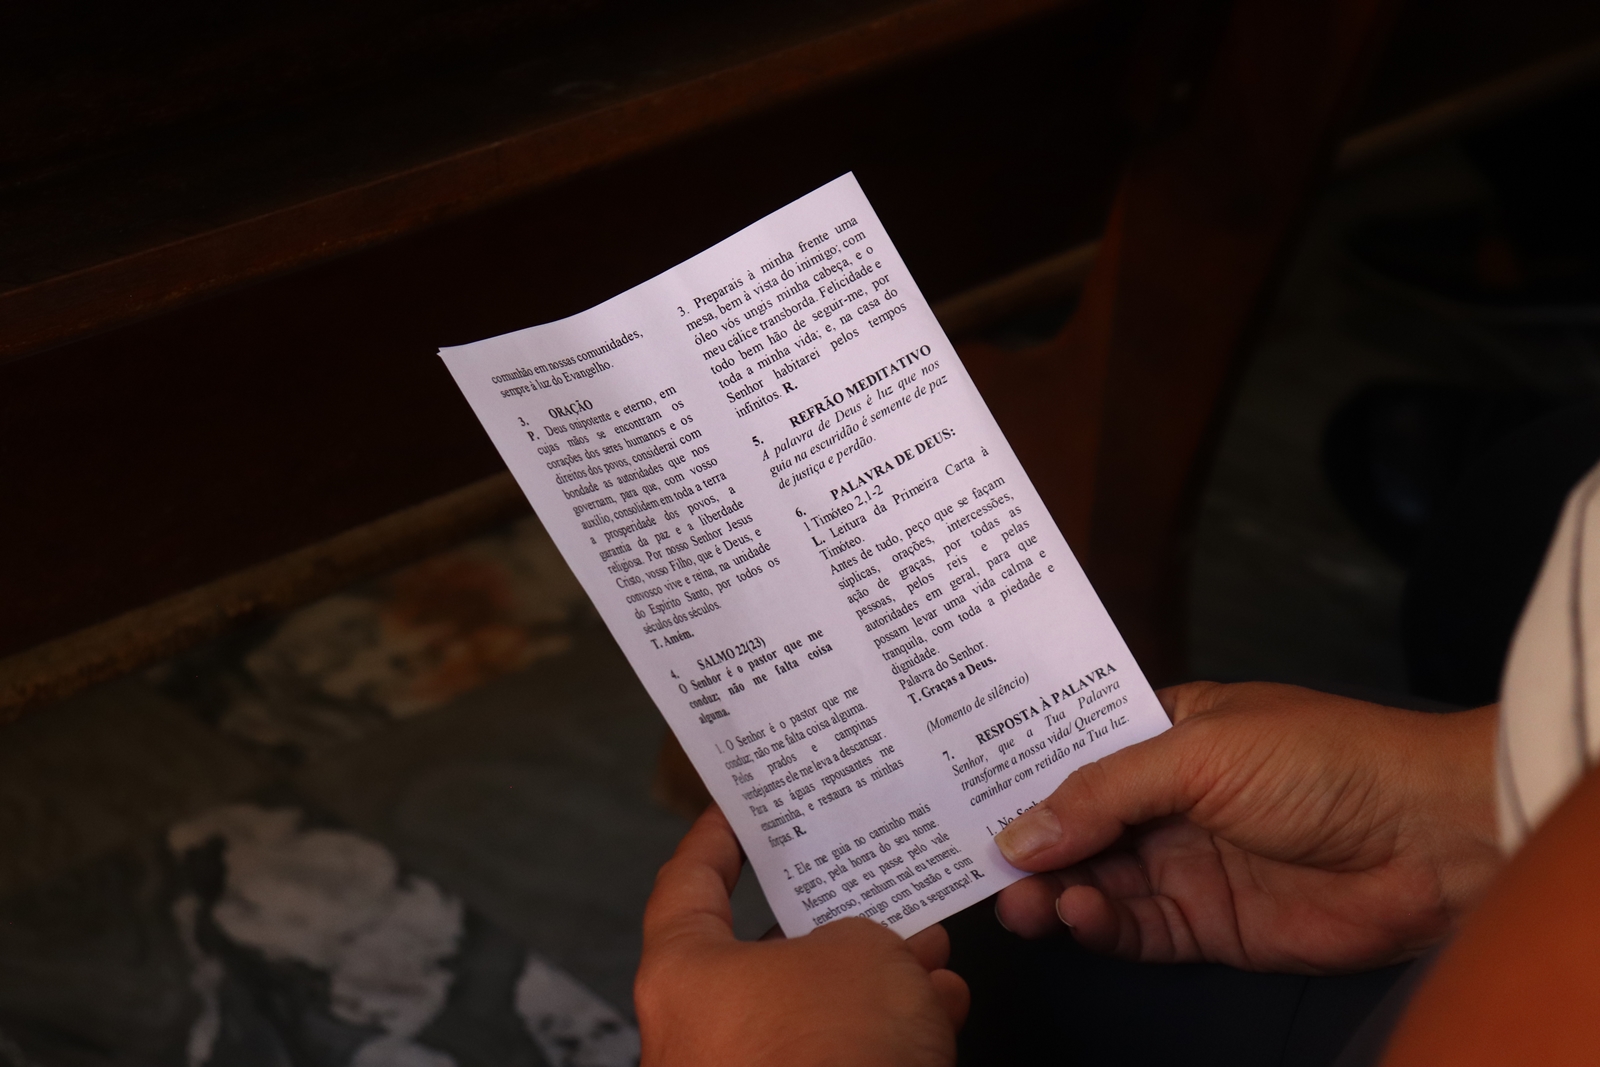 comunhão em nossas comunidades,
sempre à luz do Evangelho.
3. ORAÇÃO
P. Deus onipotente e eterno, em
cujas mãos se encontram os
corações dos seres humanos e os
direitos dos povos, considerai com
bondade as autoridades que nos
governam, para que, com vosso
auxílio, consolidem em toda a terra
a prosperidade dos povos, a
garantia da paz e a liberdade
religiosa. Por nosso Senhor Jesus
Cristo, vosso Filho, que é Deus, e
convosco vive e reina, na unidade
do Espírito Santo, por todos os
séculos dos séculos.
T. Amém.
4. SALMO 22(23)
O Senhor é o pastor que me
conduz; não me falta coisa
alguma.
1. O Senhor é o pastor que me
conduz; não me falta coisa alguma.
Pelos prados e campinas
verdejantes ele me leva a descansar.
Para as águas repousantes me
encaminha, e restaura as minhas
forças. R.
2. Ele me guia no caminho mais
seguro, pela honra do seu nome.
Mesmo que eu passe pelo vale
tenebroso, nenhum mal eu temerei.
omigo com bastão e com
s me dão a segurança! R.
3. Preparais à minha frente uma
mesa, bem à vista do inimigo; com
óleo vós ungis minha cabeça, e o
meu cálice transborda. Felicidade e
todo bem hão de seguir-me, por
toda a minha vida; e, na casa do
Senhor habitarei pelos tempos
infinitos. R.
5. REFRÃO MEDITATIVO
A palavra de Deus é luz que nos
guia na escuridão é semente de paz
de justiça e perdão.
6. PALAVRA DE DEUS:
1 Timóteo 2,1-2
L. Leitura da Primeira Carta à
Timóteo.
Antes de tudo, peço que se façam
súplicas, orações, intercessões,
ação de graças, por todas as
pessoas, pelos reis e pelas
autoridades em geral, para que
possam levar uma vida calma e
tranquila, com toda a piedade e
dignidade.
Palavra do Senhor.
T. Graças a Deus.
(Momento de silêncio)
7. RESPOSTA À PALAVRA
Senhor, que a Tua Palavra
transforme a nossa vida/ Queremos
caminhar com retidão na Tua luz.
1. No Senh